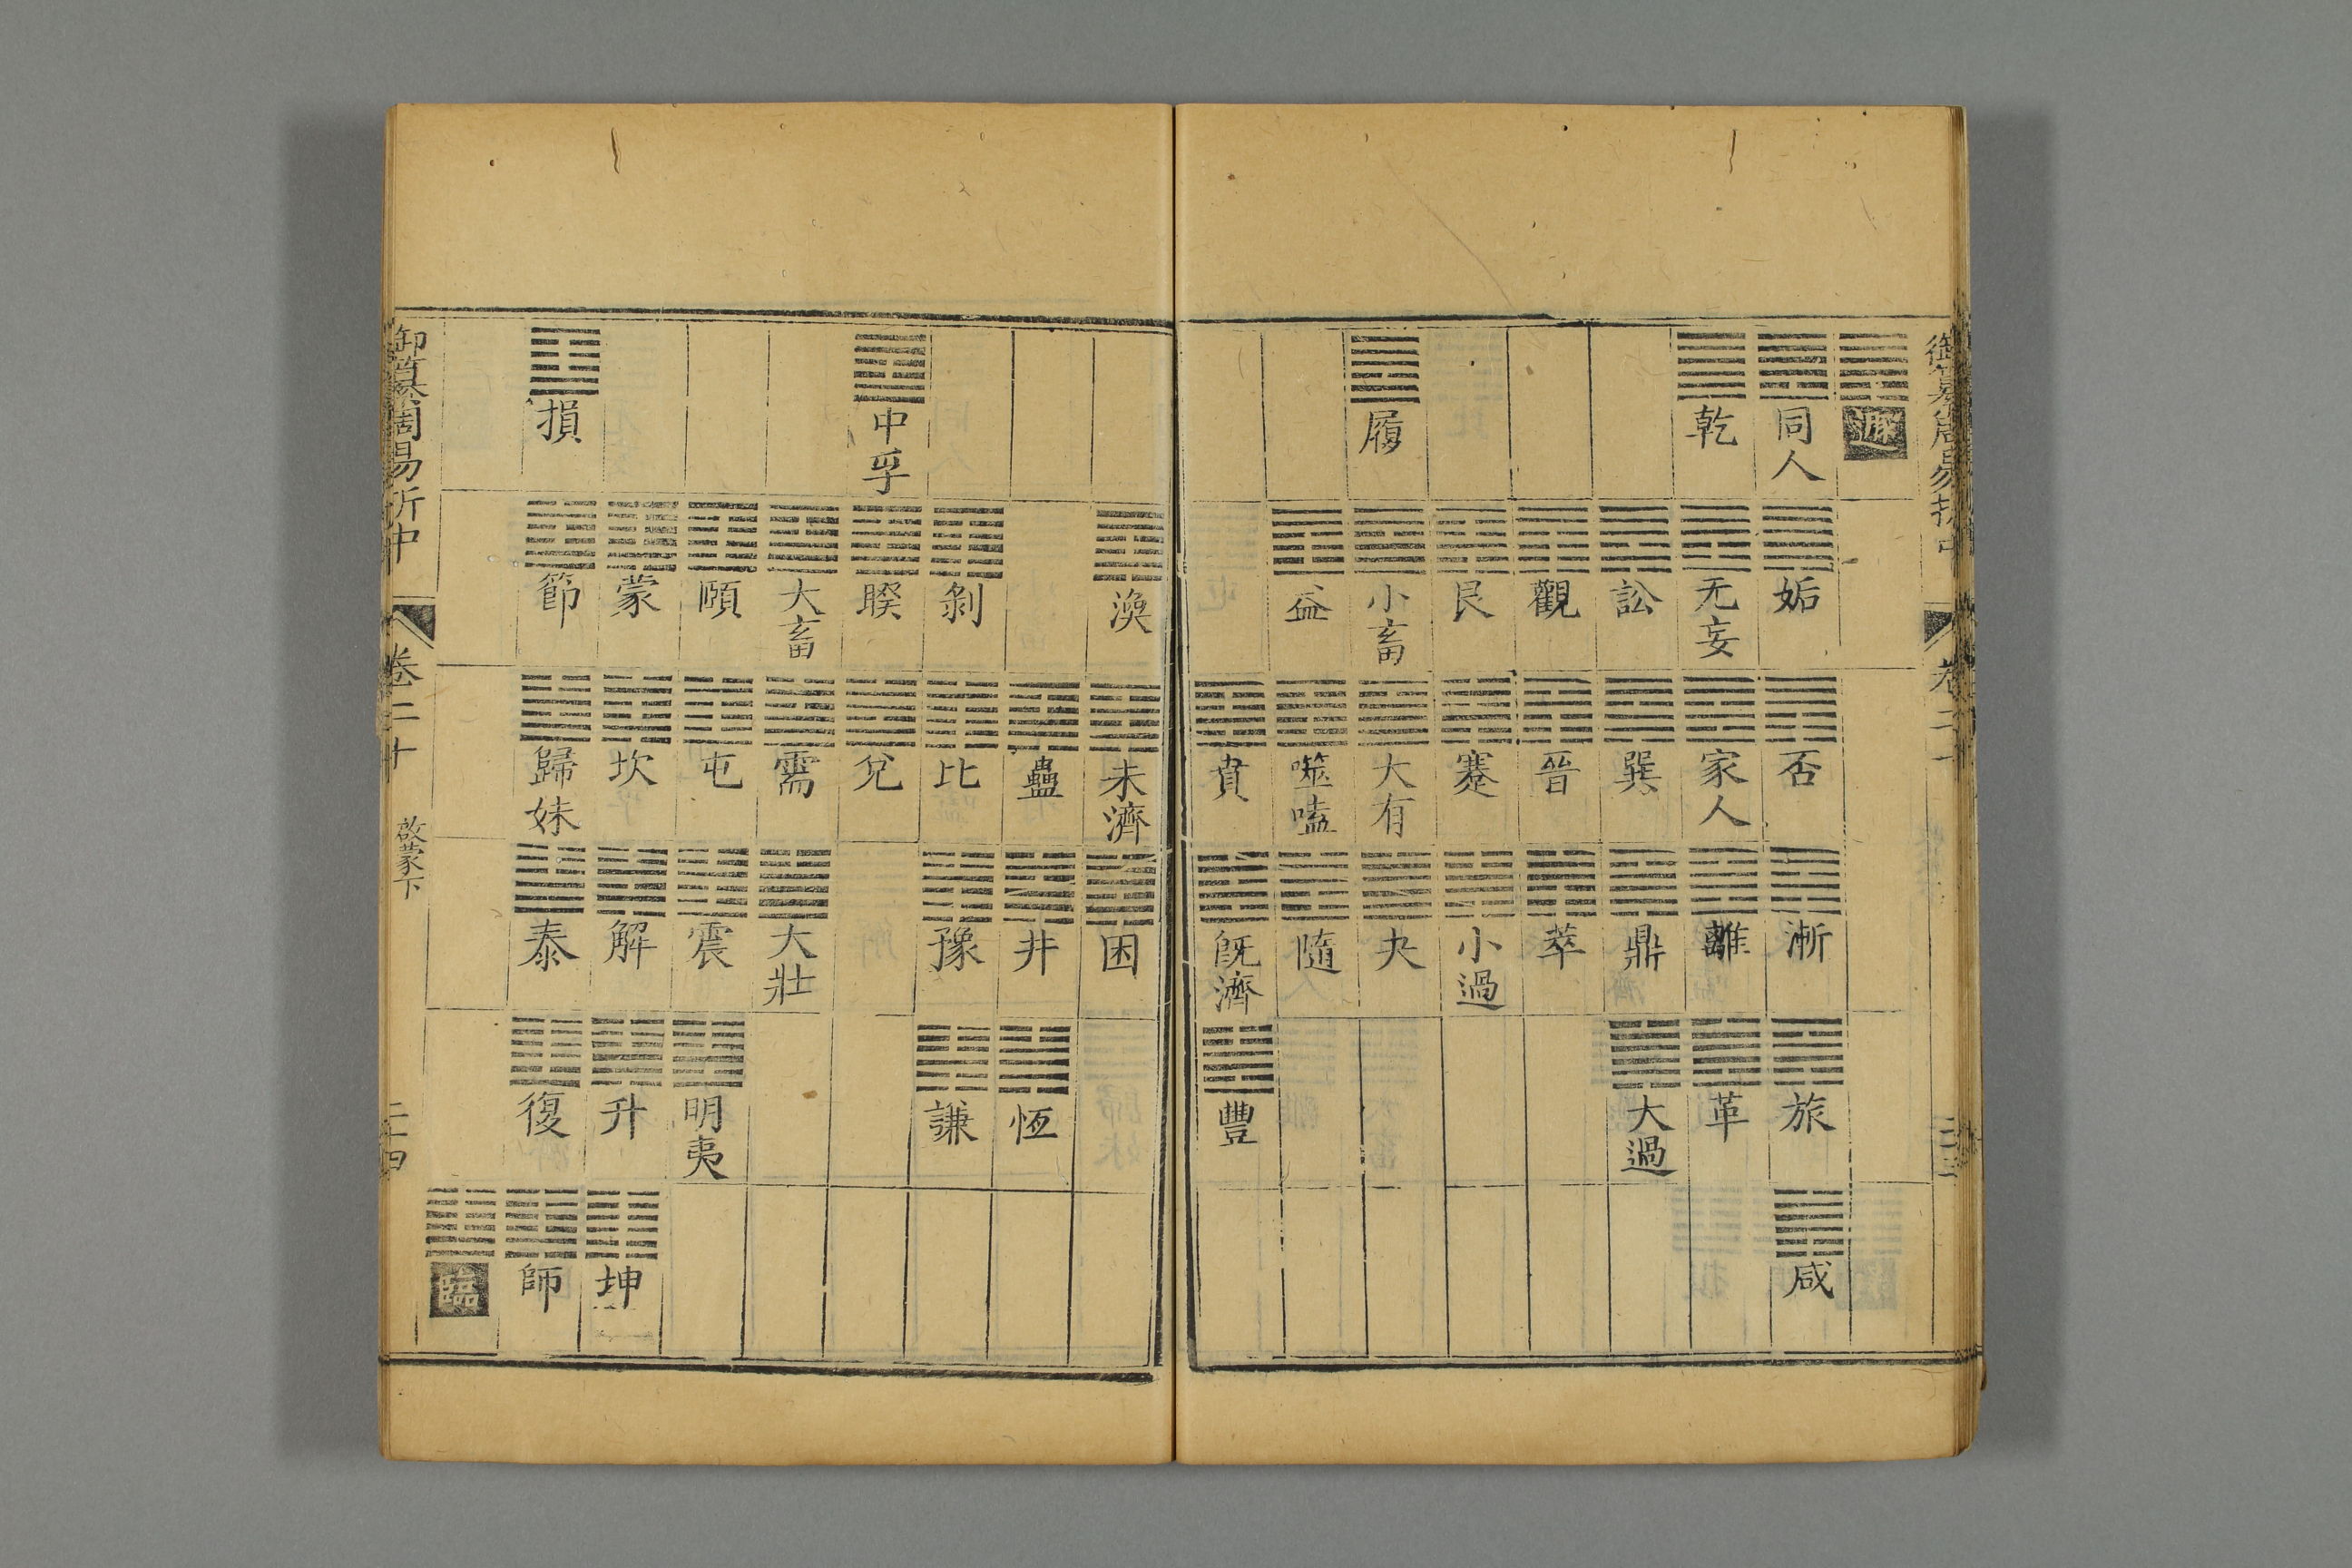 御纂周易折中 卷二十
遯
同人 姤 否 漸 旅 咸
乾 无妄 家人 離 革
訟 巽 鼎 大過
觀 晉 萃
艮 蹇 小過
履 小畜 大有 夬
益 噬嗑 隨
賁 既濟 豐
渙 未濟 困
蠱 井 恆
剝 比 豫 謙
中孚 睽 兌
大畜 需 大壯
頤 屯 震 明夷
蒙 坎 解 升 坤
損 節 歸妹 泰 復 師
臨
御纂周易折中 卷二十 啟蒙下 二十四